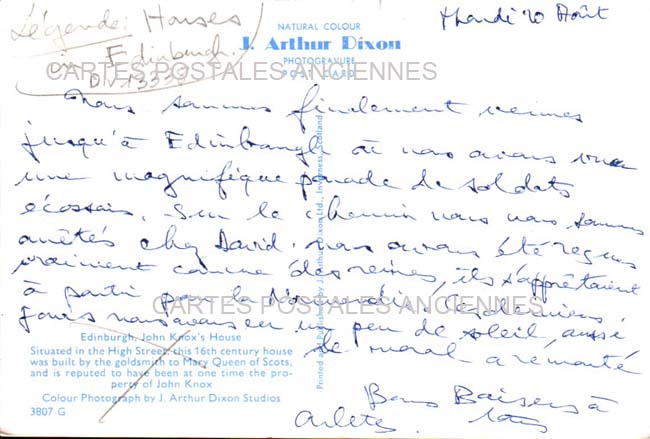 Légende: Houses
in Edinburgh.
Mardi 20 Août
NATURAL COLOUR
J. Arthur Dixon
PHOTOGRAVURE
POST CARD
CARTES POSTALES ANCIENNES
Nous sommes finalement venues
jusqu'à Edinburgh où nous avons vu
une magnifique parade de soldats
écossais. Sur le chemin nous nous sommes
arrêtés chez David. nous avons été reçues
vraiment comme des reines, ils s'apprêtaient
à partir par le
CARTES POSTALES ANCIENNES
jours nous avons eu un peu de soleil, aussi
le moral a remonté
Bons Baisers à
tous
Arlette
Printed and Published by J. Arthur Dixon Ltd., Inverness, Scotland
Edinburgh, John Knox's House
Situated in the High Street, this 16th century house
was built by the goldsmith to Mary Queen of Scots,
and is reputed to have been at one time the pro-
perty of John Knox
Colour Photograph by J. Arthur Dixon Studios
3807 G